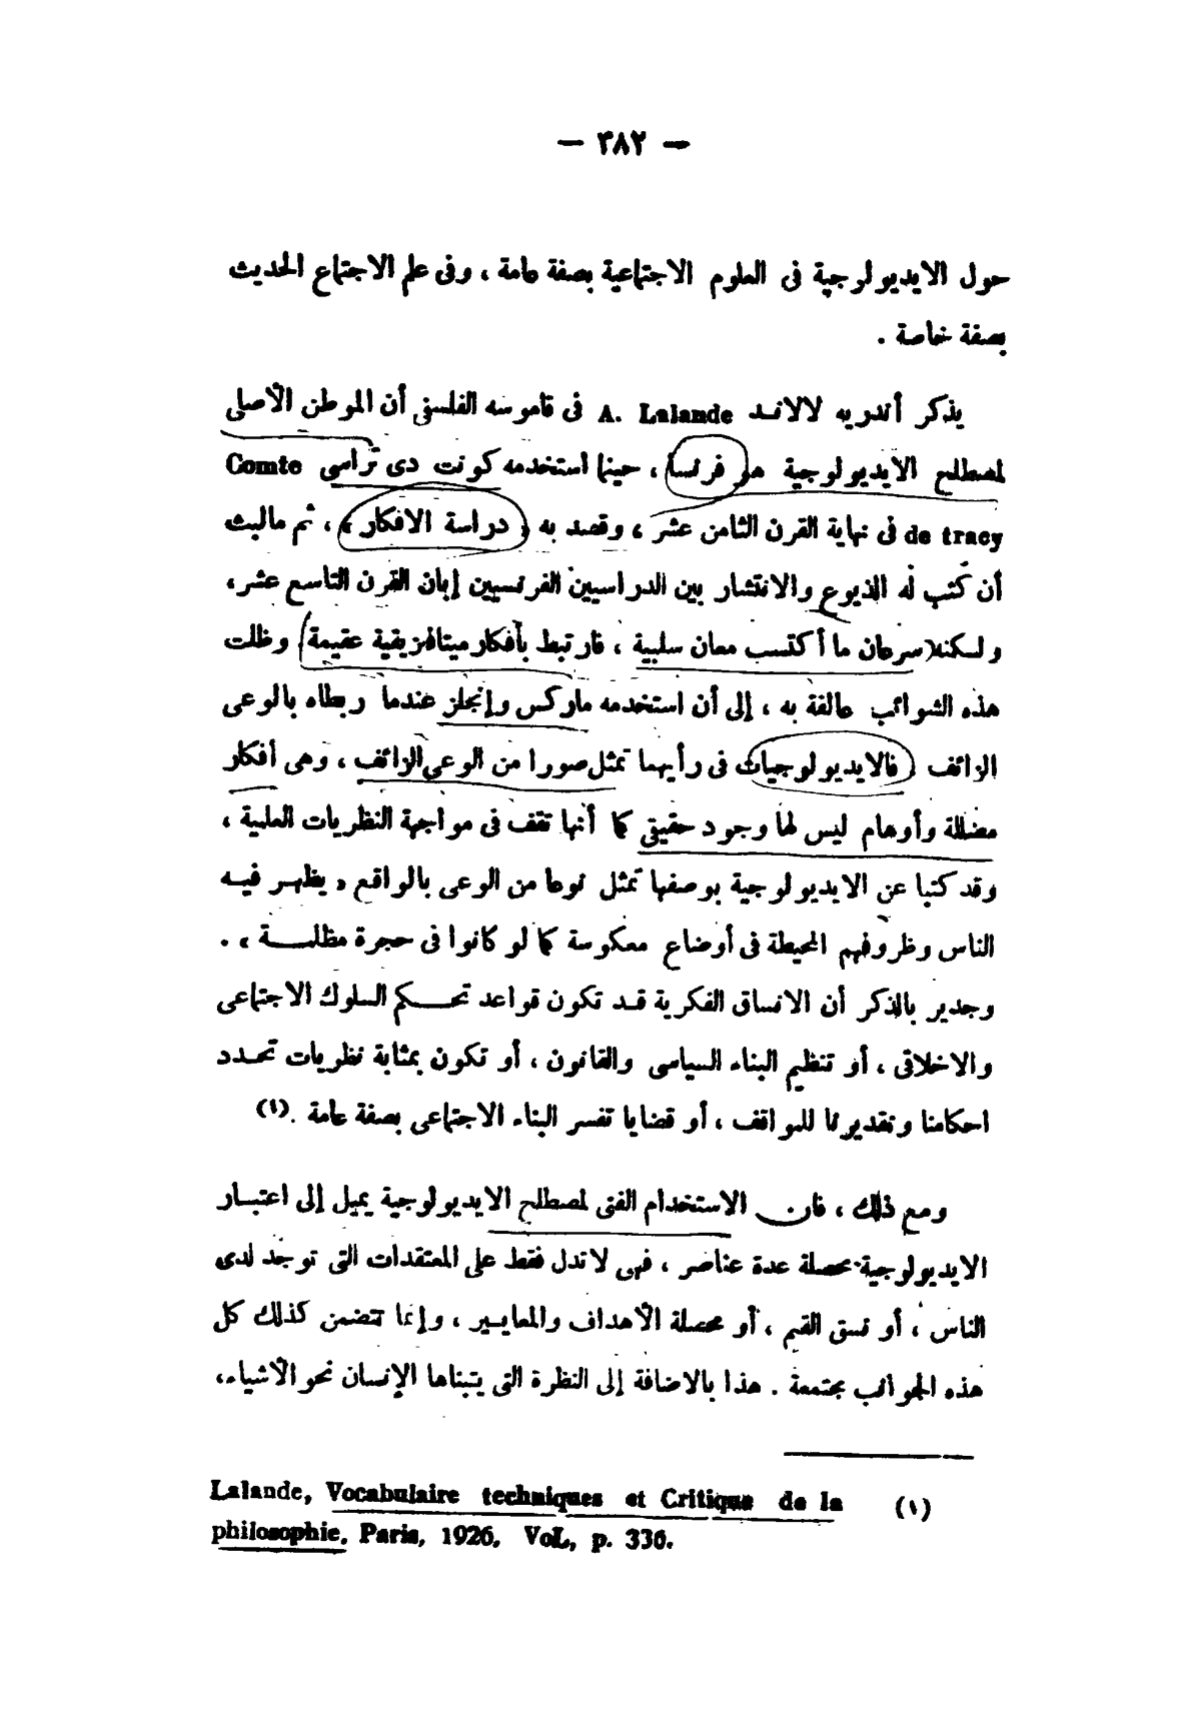 — ٣٨٢ —
حول الايديولوجية فى العلوم الاجتماعية بصفة عامة ، وفى علم الاجتماع الحديث
بصفة خاصة .
يذكر أندريه لالاند A. Lalande فى قاموسه الفلسفى أن الموطن الأصلى
لمصطلح الايديولوجية هو فرنسا ، حينما استخدمه كونت دى تراسى Comte
de tracy فى نهاية القرن الثامن عشر ، وقصد به « دراسة الافكار » ، ثم مالبث
أن كُتب له الذيوع والانتشار بين الدراسيين الفرنسيين إبان القرن التاسع عشر،
ولكنه سرعان ما أكتسب معان سلبية ، فارتبط بأفكار ميتافزيقية عقيمة وظلت
هذه الشوائب عالقة به ، إلى أن استخدمه ماركس وإنجلز عندما ربطاه بالوعى
الزائف . فالايديولوجيات فى رأيهما تمثل صورا من الوعى الزائف ، وهى أفكار
مضللة وأوهام ليس لها وجود حقيقى كما أنها تقف فى مواجهة النظريات العلمية ،
وقد كتبا عن الايديولوجية بوصفها تمثل نوعا من الوعى بالواقع « يظهر فيه
الناس وظروفهم المحيطة فى أوضاع معكوسة كما لو كانوا فى حجرة مظلمة » .
وجدير بالذكر أن الانساق الفكرية قد تكون قواعد تحكم السلوك الاجتماعى
والاخلاقى ، أو تنظيم البناء السياسى والقانون ، أو تكون بمثابة نظريات تحدد
احكامنا وتقديرنا للمواقف ، أو قضايا تفسر البناء الاجتماعى بصفة عامة .(١)
ومع ذلك ، فان الاستخدام الفنى لمصطلح الايديولوجية يميل إلى اعتبار
الايديولوجية محصلة عدة عناصر ، فهى لاتدل فقط على المعتقدات التى توجد لدى
الناس ، أو نسق القيم ، أو محصلة الأهداف والمعايير ، وإنما تتضمن كذلك كل
هذه الجوانب مجتمعة . هذا بالاضافة إلى النظرة التى يتبناها الإنسان نحو الأشياء،
(١) Lalande, Vocabulaire techniques et Critique de la
philosophie, Paris, 1926, Vol., p. 336.